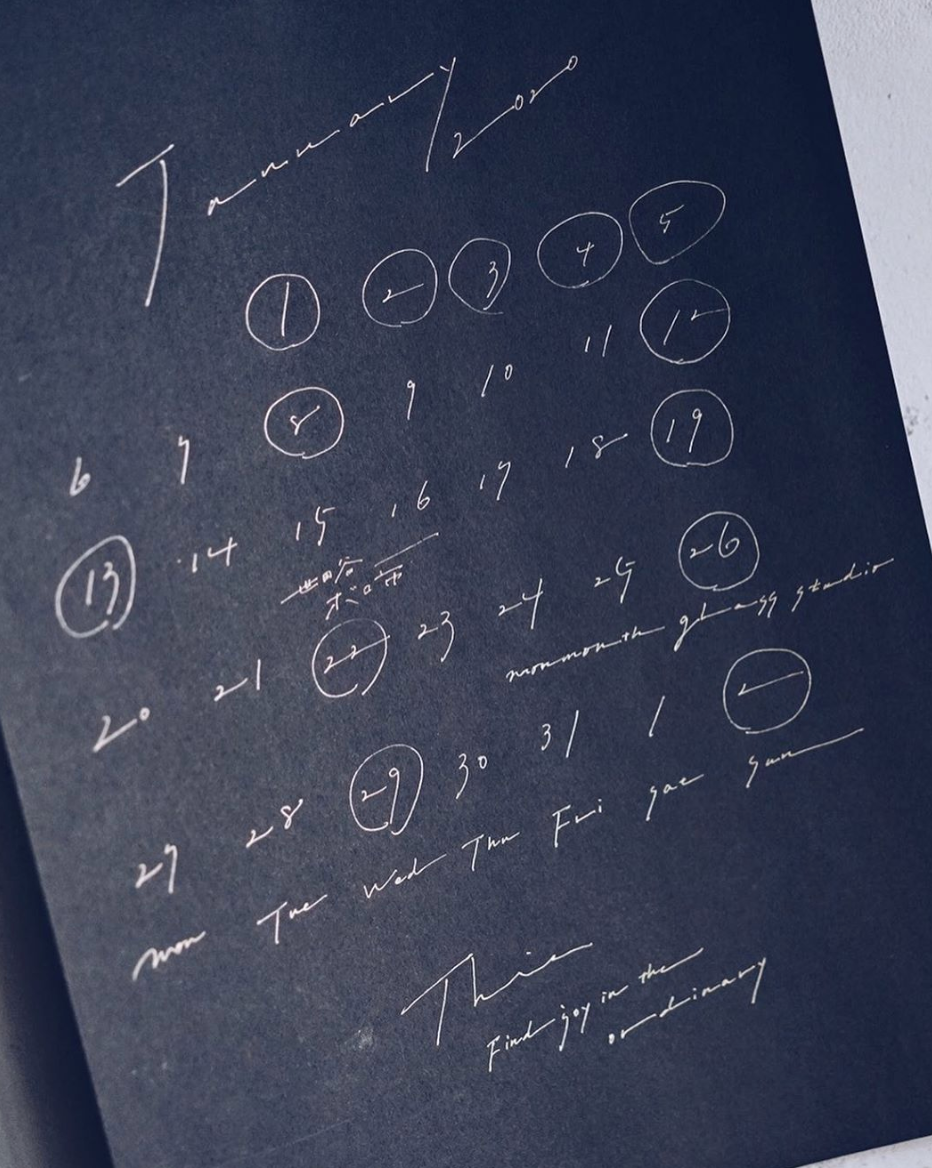 January/2020
1 2 3 4 5
6 7 8 9 10 11 12
13 14 15 16 17 18 19
20 21 22 23 24 25 26
monmonth glass studio
27 28 29 30 31 1 2
mon Tue Wed Thu Fri sat sun
This
Find joy in the
ordinary